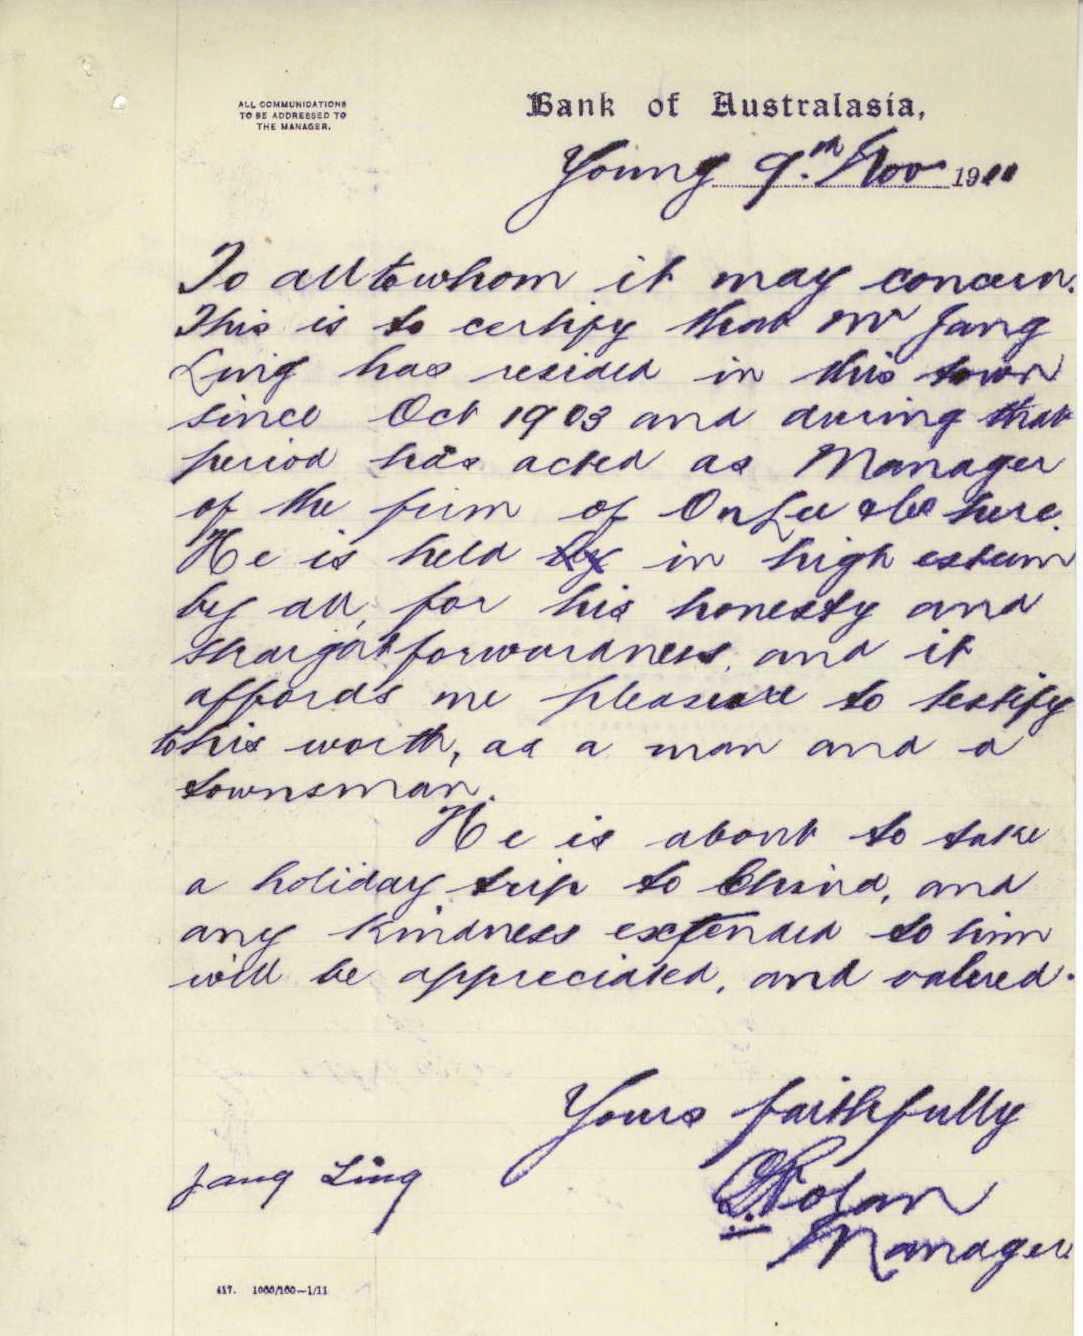 ALL COMMUNICATIONS
TO BE ADDRESSED TO
THE MANAGER.
Bank of Australasia,
Young 9th Nov 1911
To all to whom it may concern.
This is to certify that Mr Jang
Ling has resided in this town
since Oct 1903 and during that
period has acted as Manager
of the firm of On Lee & Co here.
He is held by in high esteem
by all, for his honesty and
straightforwardness, and it
affords me pleasure to testify
to his worth, as a man and a
townsman.
He is about to take
a holiday trip to China, and
any kindness extended to him
will be appreciated, and valued.
Yours faithfully
Jang Ling
Nolan
Manager
417. 1000/100-1/11